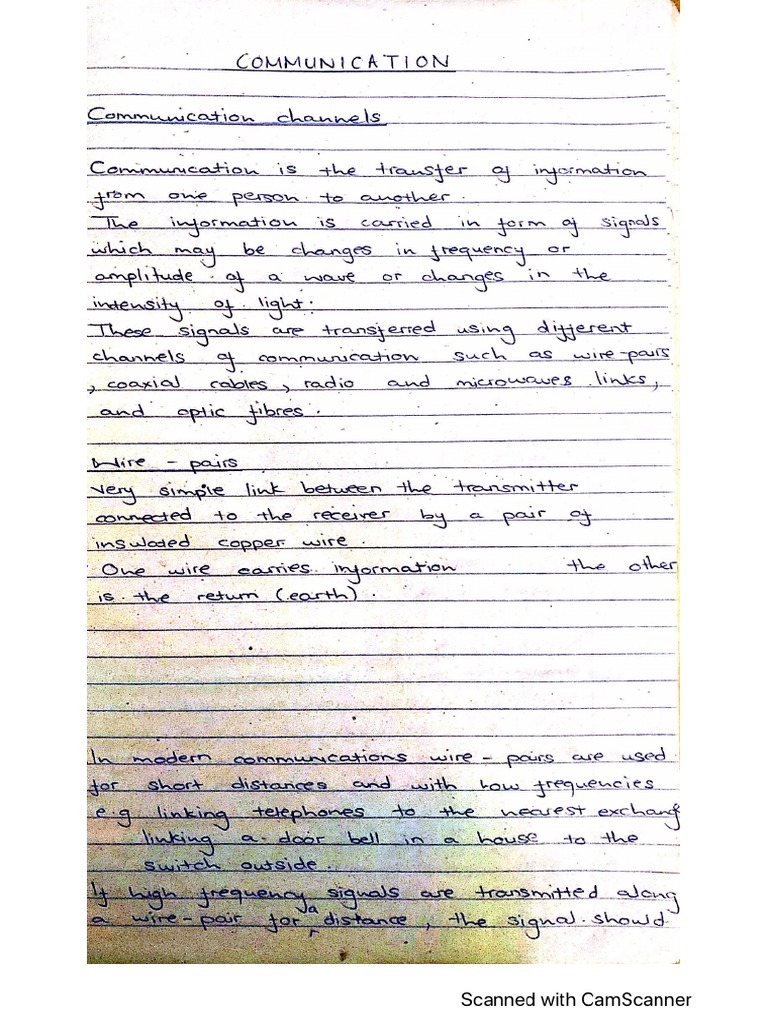 COMMUNICATION
Communication channels
Communication is the transfer of information
from one person to another.
The information is carried in form of signals
which may be changes in frequency or
amplitude of a wave or changes in the
intensity of light.
These signals are transferred using different
channels of communication such as wire-pairs
, coaxial cables, radio and microwaves links,
and optic fibres.
Wire - pairs
Very simple link between the transmitter
connected to the receiver by a pair of
insulated copper wire.
One wire carries information the other
is the return (earth).
In modern communications wire - pairs are used
for short distances and with low frequencies
e.g linking telephones to the nearest exchang
linking a door bell in a house to the
switch outside.
If high frequency signals are transmitted along
a wire-pair for a distance, the signal should
Scanned with CamScanner